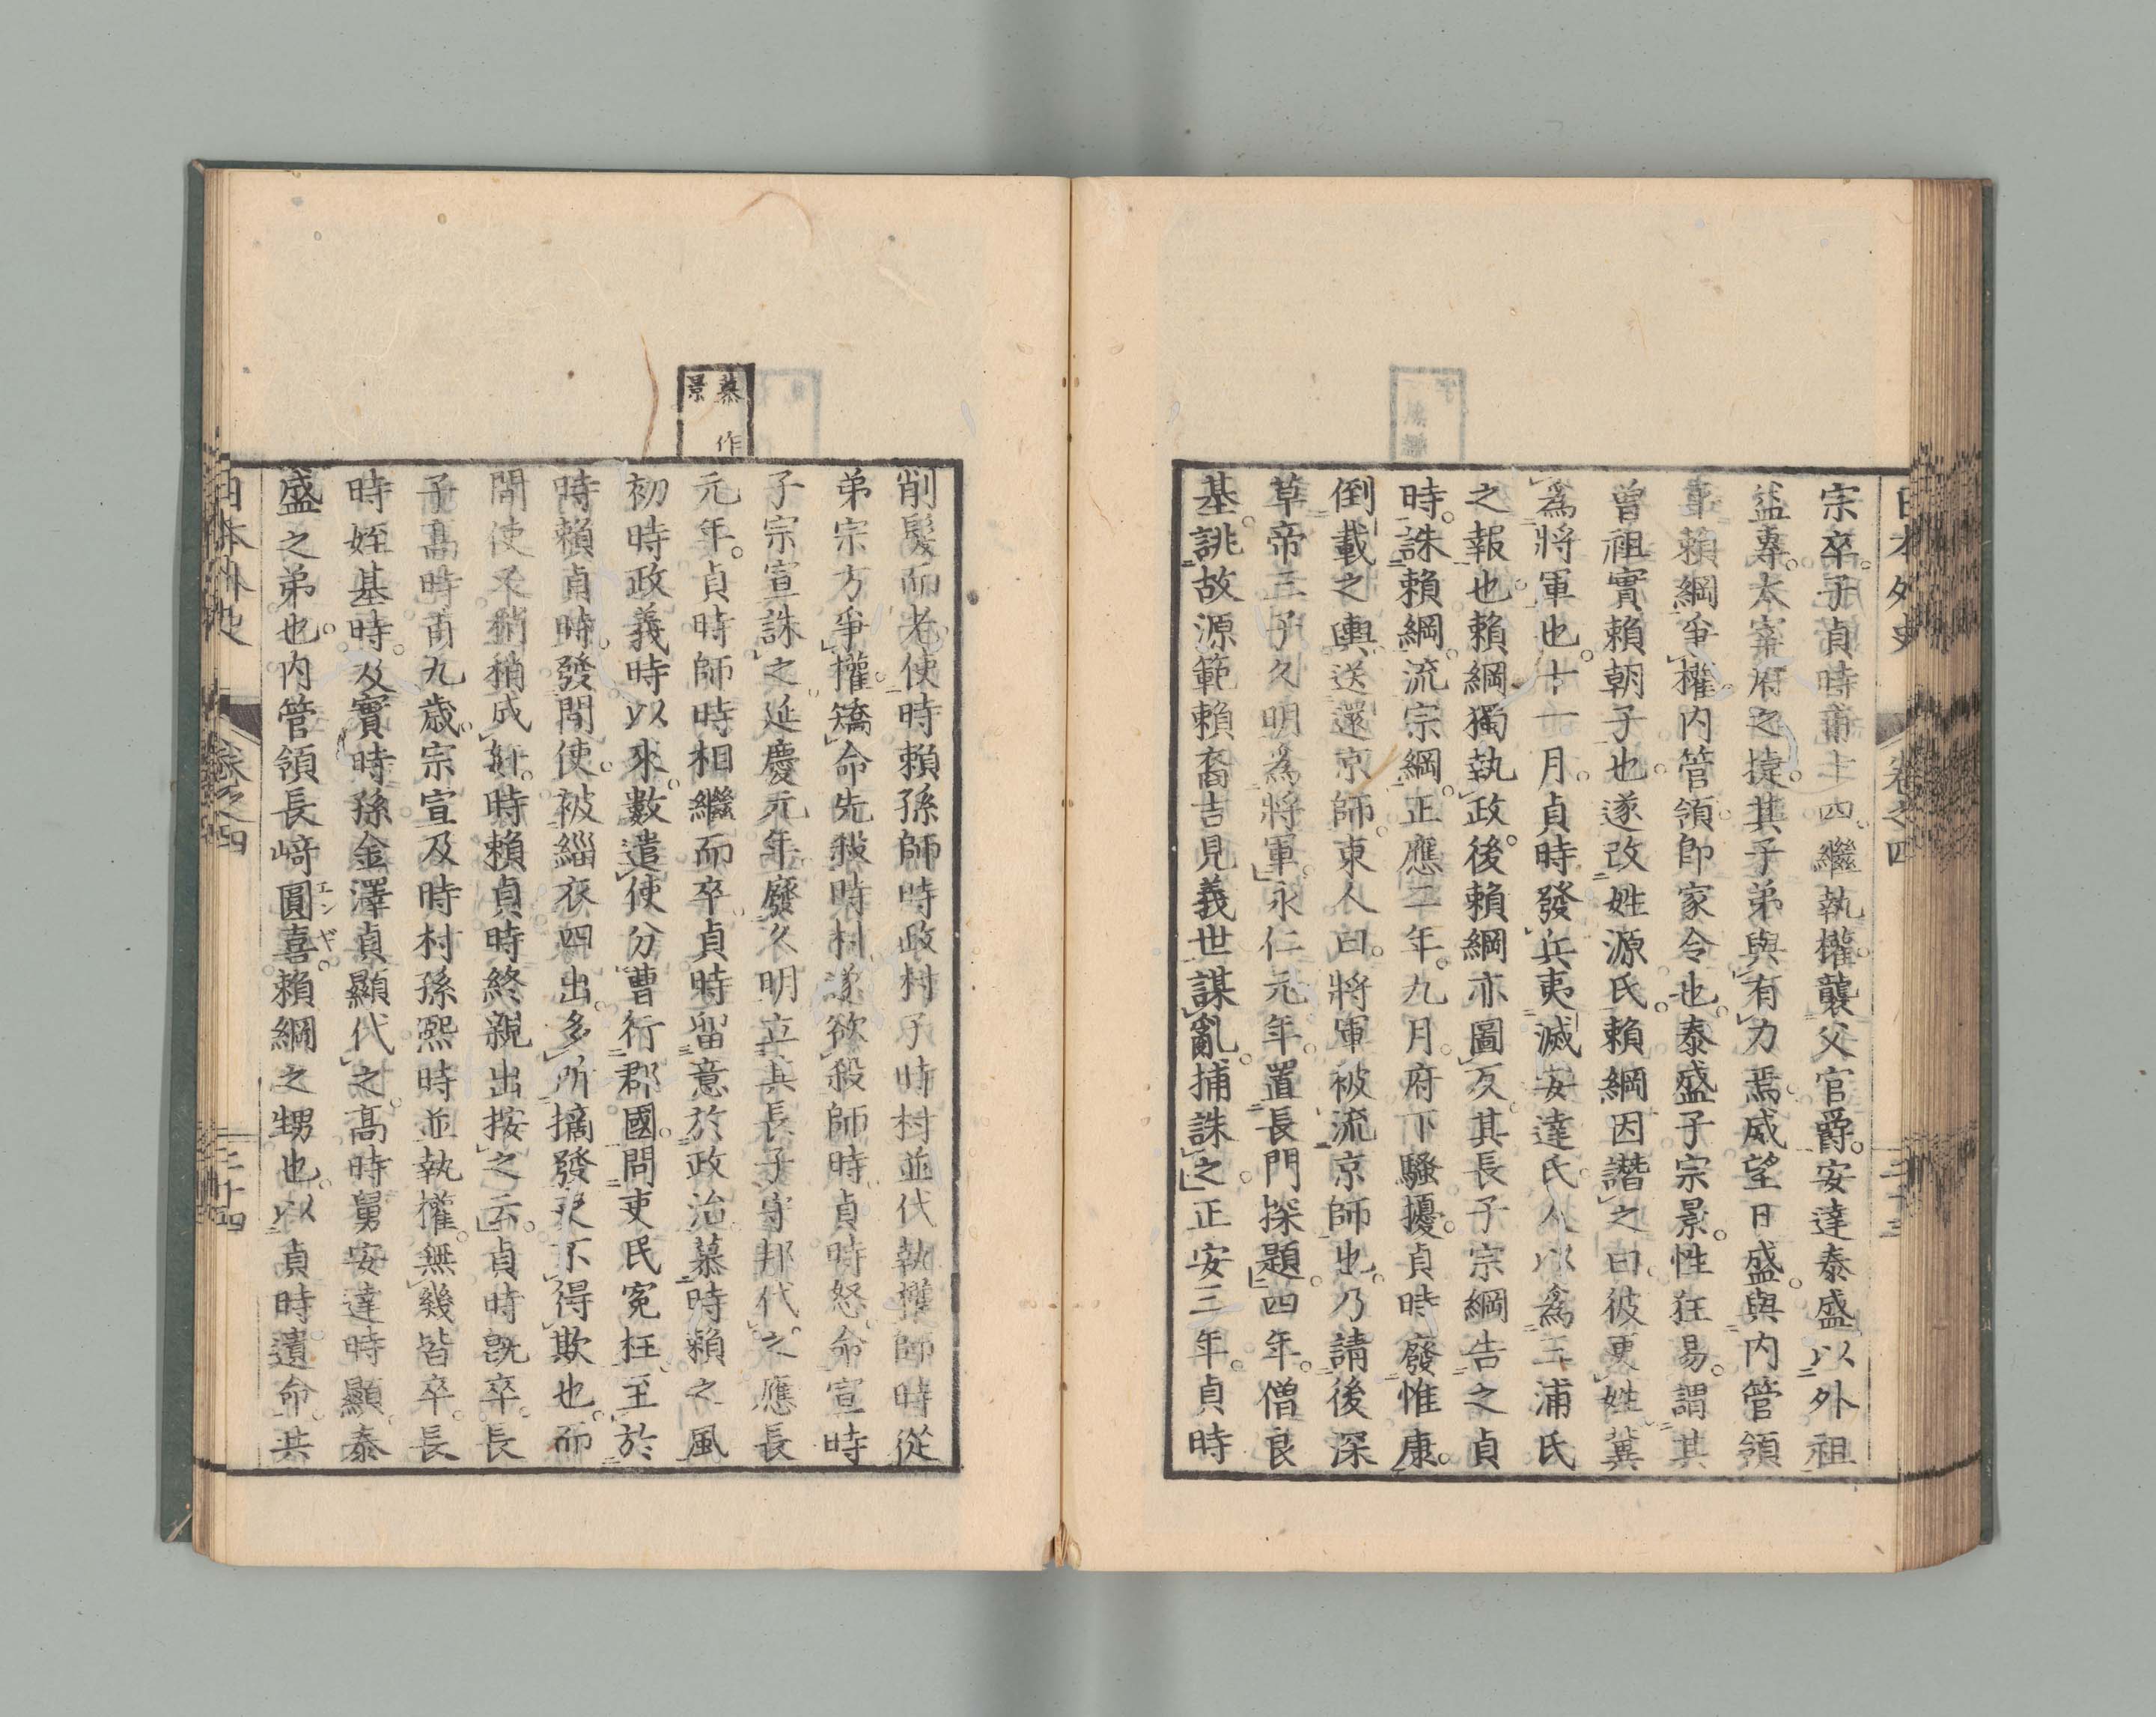 日本外史 卷之四 二十三
宗卒。子貞時甫十四。繼執權。襲父官爵。安達泰盛以外祖
益專。太宰府之捷。其子弟與有力焉。威望日盛。與內管領
平賴綱爭權。內管領即家令也。泰盛子宗景。性狂易。謂其
曾祖實賴朝子也。遂改姓源氏。賴綱因譖之曰。彼更姓冀
爲將軍也。十一月。貞時發兵夷滅安達氏。人以爲三浦氏
之報也。賴綱獨執政。後賴綱亦圖反。其長子宗綱告之貞
時。誅賴綱。流宗綱。正應二年。九月。府下騷擾。貞時廢惟康。
倒載之輿。送還京師。東人曰。將軍被流京師也。乃請後深
草帝三子久明爲將軍。永仁元年。置長門探題。四年。僧良
基誂故源範賴裔吉見義世謀亂。捕誅之。正安三年。貞時
削髮而老。使時賴孫師時政村子時村並代執權。師時從
弟宗方爭權。矯命先殺時村。遂欲殺師時。貞時怒。命宣時
子宗宣誅之。延慶元年。廢久明。立其長子守邦代之。應長
元年。貞時師時相繼而卒。貞時留意於政治。慕時賴之風
初時政義時以來。數遣使分曹行郡國。問吏民冤枉。至於
時賴貞時。發間使。被緇衣四出。多所擿發。吏不得欺也。而
間使又稍稍成奸。時賴貞時終親出按之云。貞時既卒。長
子高時甫九歲。宗宣及時村孫煕時並執權。無幾皆卒。長
時姪基時。及實時孫金澤貞顯代之。高時舅安達時顯。泰
盛之弟也。內管領長崎圓喜。賴綱之甥也。以貞時遺命。共
エン ギ
慕作
景
日本外史 卷之四 二十四